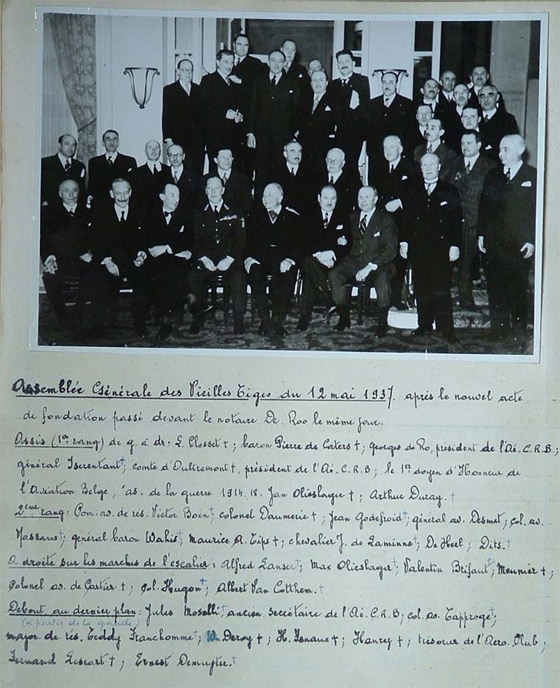 Assemblée Générale des Vieilles Tiges du 12 mai 1937. après le nouvel acte
de fondation passé devant le notaire De Roo le même jour.
Assis (1er rang) de g. à dr. L. Closset † ; baron Pierre de Caters † ; Georges de Ro, président de l'Aé. C.R.B ;
général Iserentant † ; comte d'Oultremont †, président de l'Aé. C.R.B ; le 1er doyen d'Honneur de
l'Aviation Belge, as. de la guerre 1914.18. Jan Olieslagers † ; Arthur Duray. †
2ème rang : av. de rés. Victor Boin † ; colonel Daumerie † ; Jean Godefroid † ; général av. Desmet ; col. av.
Massaux † ; général baron Wahis † ; Maurice A. Tips † ; chevalier J. de Laminne † ; De Heel ; Dits. †
A droite sur les marches de l'escalier : Alfred Lanser † ; Max Olieslagers † ; Valentin Brifaut † ; Meunier † ;
Colonel av. de Cartier † ; col. Hugon † ; Albert Van Cotthem. †
Debout au dernier plan : Jules Moselli † ancien secrétaire de l'Aé. C.R.B ; col. av. Tapproge † ;
(à partir de la gauche)
major de rés. Teddy Franchomme † ; W. Deroy † ; H. Isnaux † ; Hanrey † ; trésorier de l'Aero. Club ;
Fernand Lescart † ; Ernest Demuyter. †